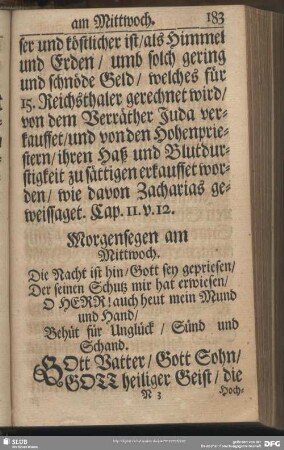 am Mittwoch. 183
ser und köstlicher ist/als Himmel
und Erden/ umb solch gering
und schnöde Geld/ welches für
15. Reichsthaler gerechnet wird/
von dem Verräther Juda ver-
kauffet/und von den Hohenprie-
stern/ ihren Haß und Blutdur-
stigkeit zu sättigen erkauffet wor-
den/ wie davon Zacharias ge-
weissaget. Cap. 11. v. 12.
Morgensegen am
Mittwoch.
Die Nacht ist hin/ Gott sey gepriesen/
Der seinen Schutz mir hat erwiesen/
O HERR! auch heut mein Mund
und Hand/
Behüt für Unglück/ Sünd und
Schand.
GOtt Vatter/ Gott Sohn/
GOTT heiliger Geist/ die
N 3 Hoch-
SLUB
DFG